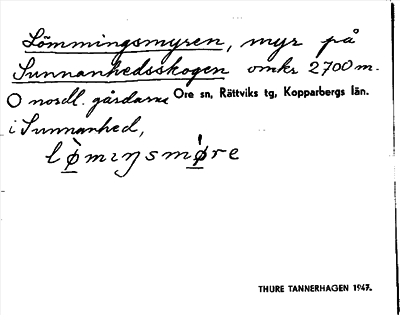 Lömmingsmyren, myr på
Sunnanhedsskogen omkr 2700 m.
O nordl. gårdarna Ore sn, Rättviks tg, Kopparbergs län.
i Sunnanhed,
lø̀mıŋsmø̍re
THURE TANNERHAGEN 1947.